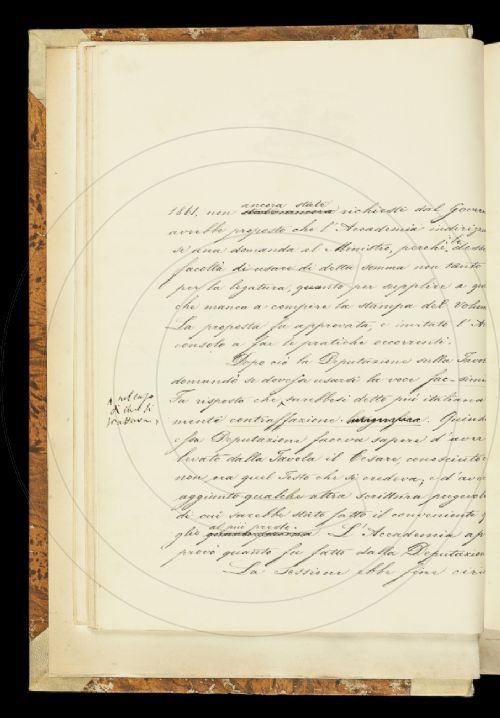 1861, non ancora state richieste dal Govern
avrebbe proposto che l'Accademia indirizza
se una domanda al Ministro, perchè le desse
facoltà di usare di detta somma non tanto
per la legatura, quanto per supplire a qu
che manca a compire la stampa del Volum
La proposta fu approvata, e invitato l'A
consolo a far le pratiche occorrenti.
Dopo ciò la Deputazione sulla Tavo
domandò se dovesse usarsi la voce fac-sim
Fu risposto che, sarebbesi detto più italiana
nel caso
di cui si
trattava,
mente contraffazione. Quind
essa Deputazione faceva sapere d'avere
levato dalla Tavola il Cesare, conosciuto
non era quel Testo che si credeva, e d'ave
aggiunto qualche altra scrittura
di cui sarebbe stato fatto il conveniente
glio al più presto. L'Accademia ap
provò quanto fu fatto dalla Deputazion
La Sessione ebbe fine circ